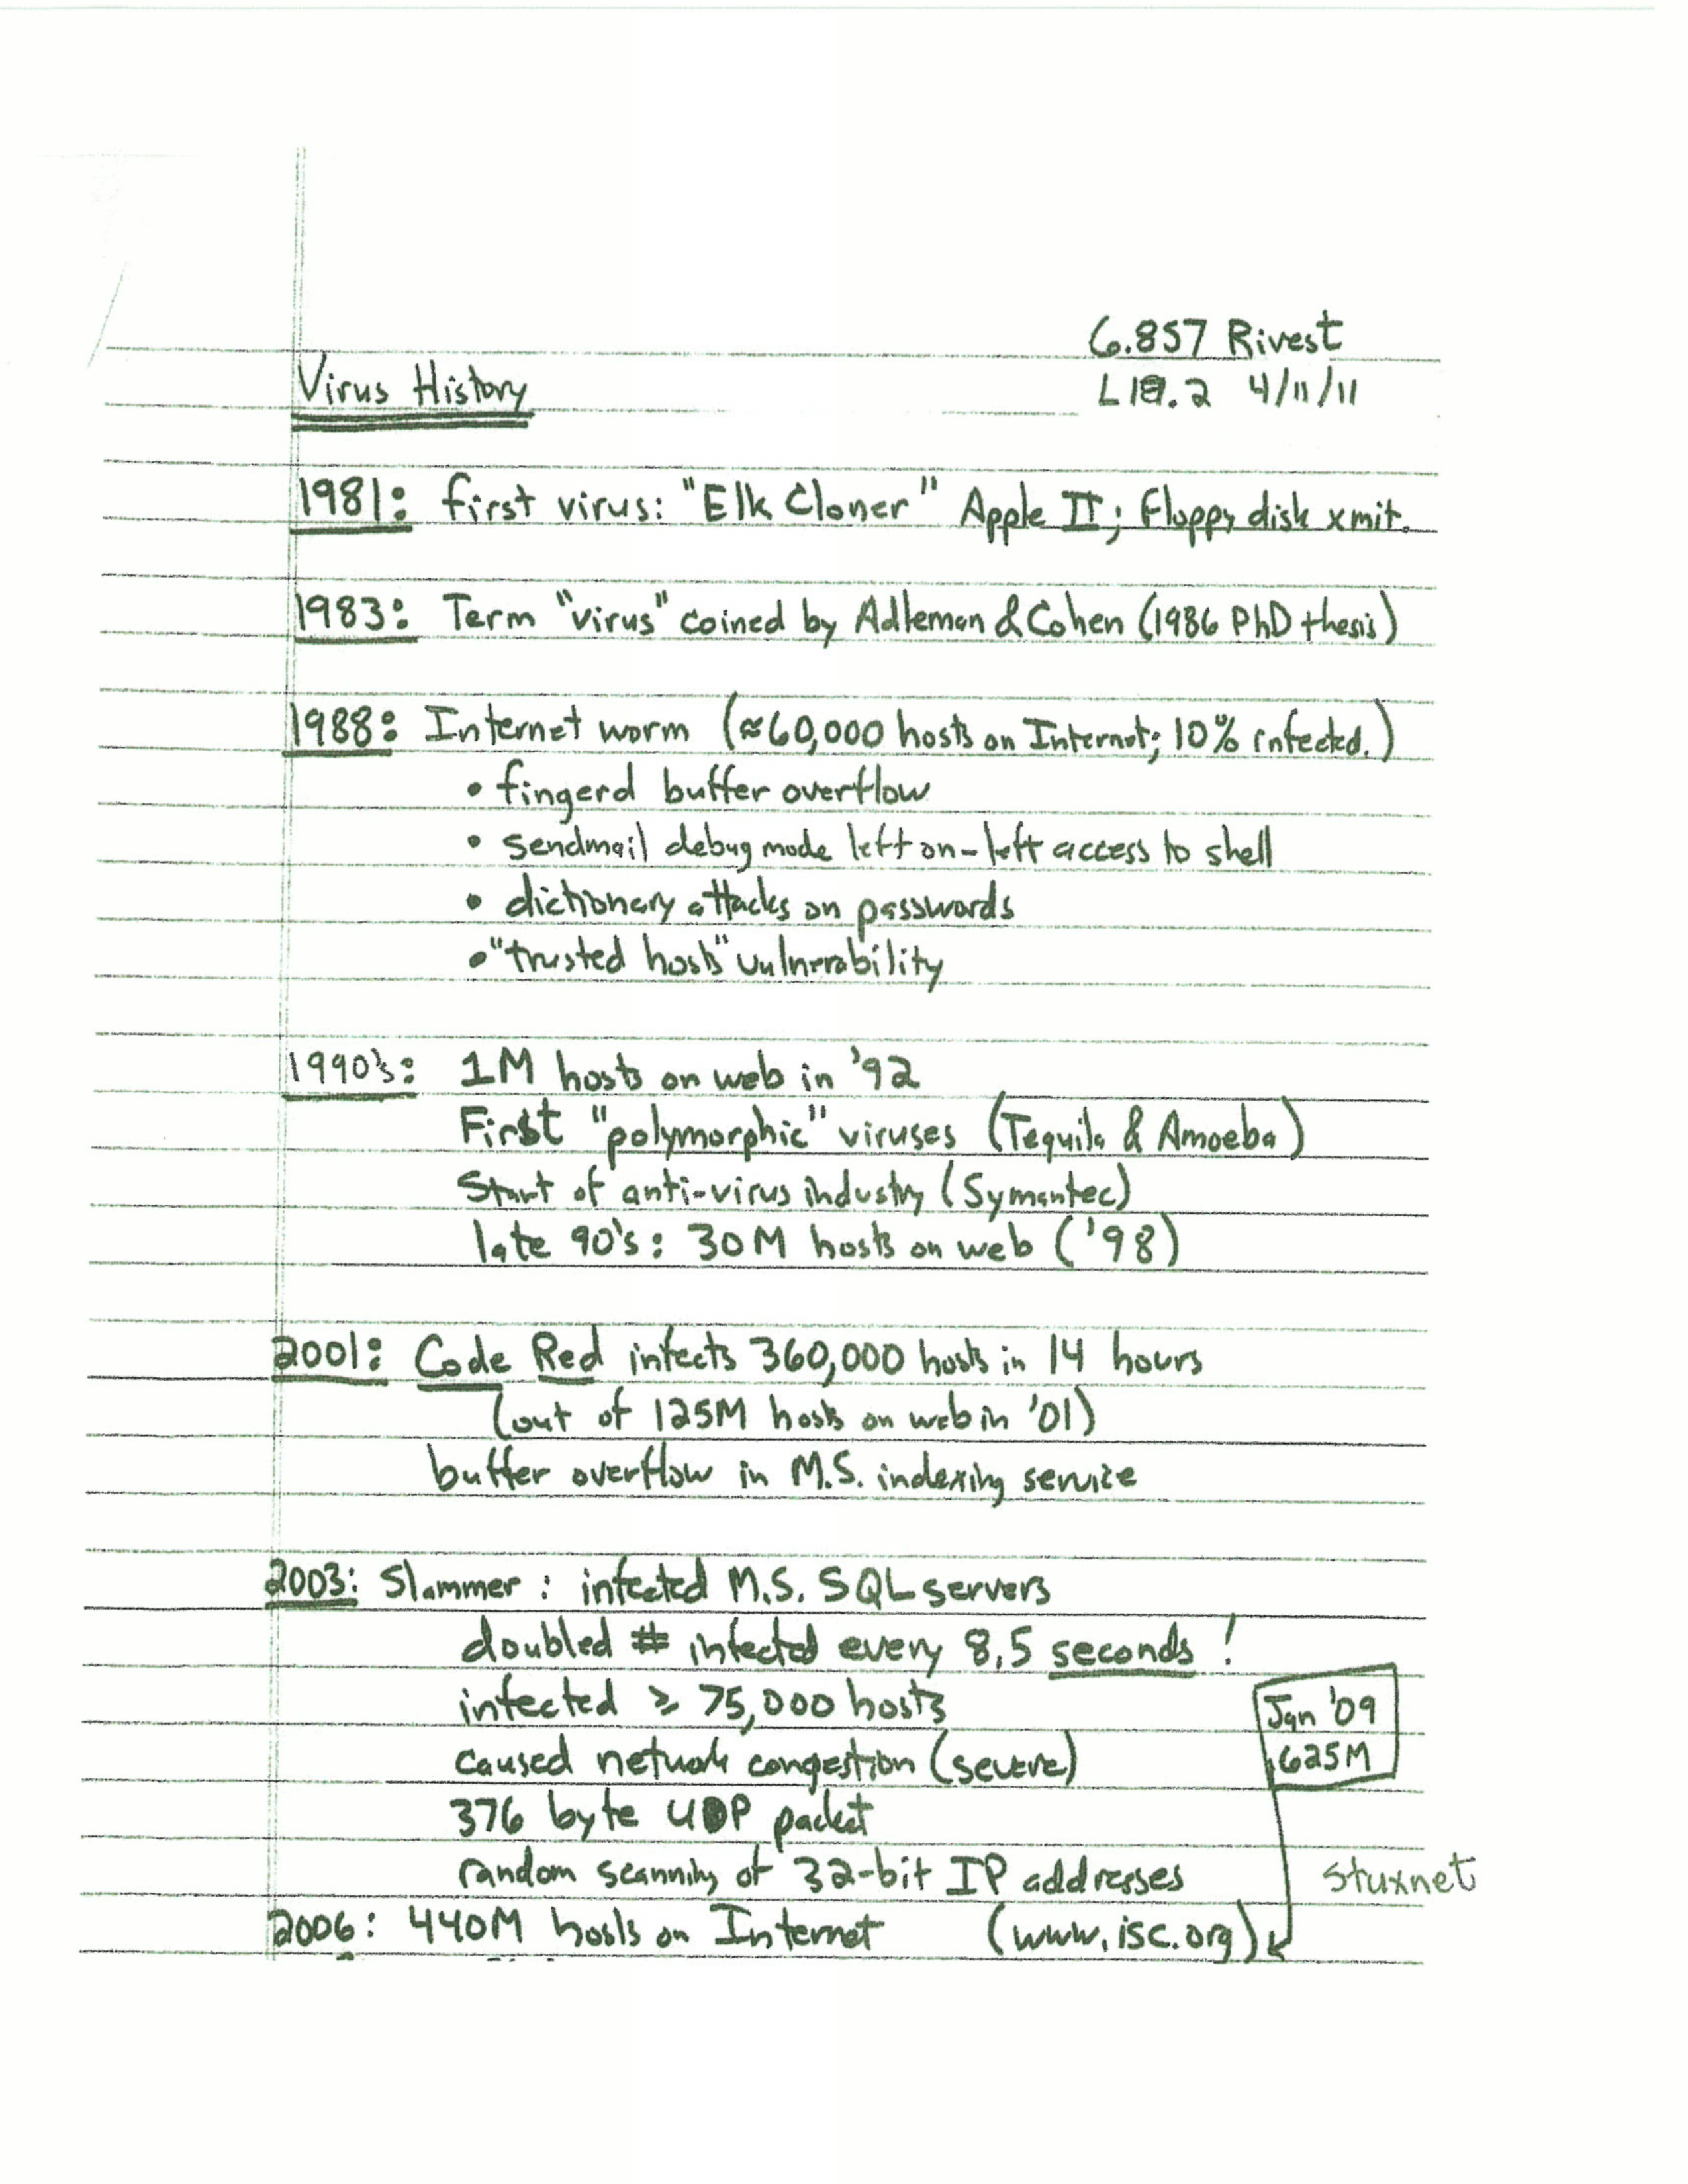 6.857 Rivest
L19.2 4/11/11
Virus History
1981: first virus: "Elk Cloner" Apple II; Floppy disk xmit.
1983: Term "virus" coined by Adleman & Cohen (1986 PhD thesis)
1988: Internet worm (≈60,000 hosts on Internet; 10% infected.)
• fingerd buffer overflow
• sendmail debug mode left on - left access to shell
• dictionary attacks on passwords
• "trusted hosts" vulnerability
1990's: 1M hosts on web in '92
First "polymorphic" viruses (Tequila & Amoeba)
Start of anti-virus industry (Symantec)
late 90's: 30M hosts on web ('98)
2001: Code Red infects 360,000 hosts in 14 hours
(out of 125M hosts on web in '01)
buffer overflow in M.S. indexing service
2003: Slammer: infected M.S. SQL servers
doubled # infected every 8.5 seconds!
infected ≥ 75,000 hosts
Jan '09
625M
caused network congestion (severe)
376 byte UDP packet
random scanning of 32-bit IP addresses
stuxnet
2006: 440M hosts on Internet (www.isc.org)